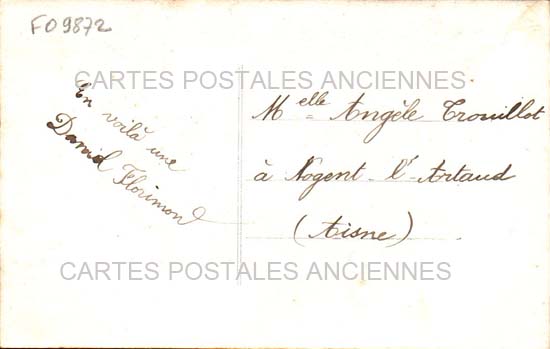 FO9872
CARTES POSTALES ANCIENNES
En voilà une
David Florimond
Melle Angèle Trouillot
à Nogent-l'Artaud
(Aisne)
CARTES POSTALES ANCIENNES